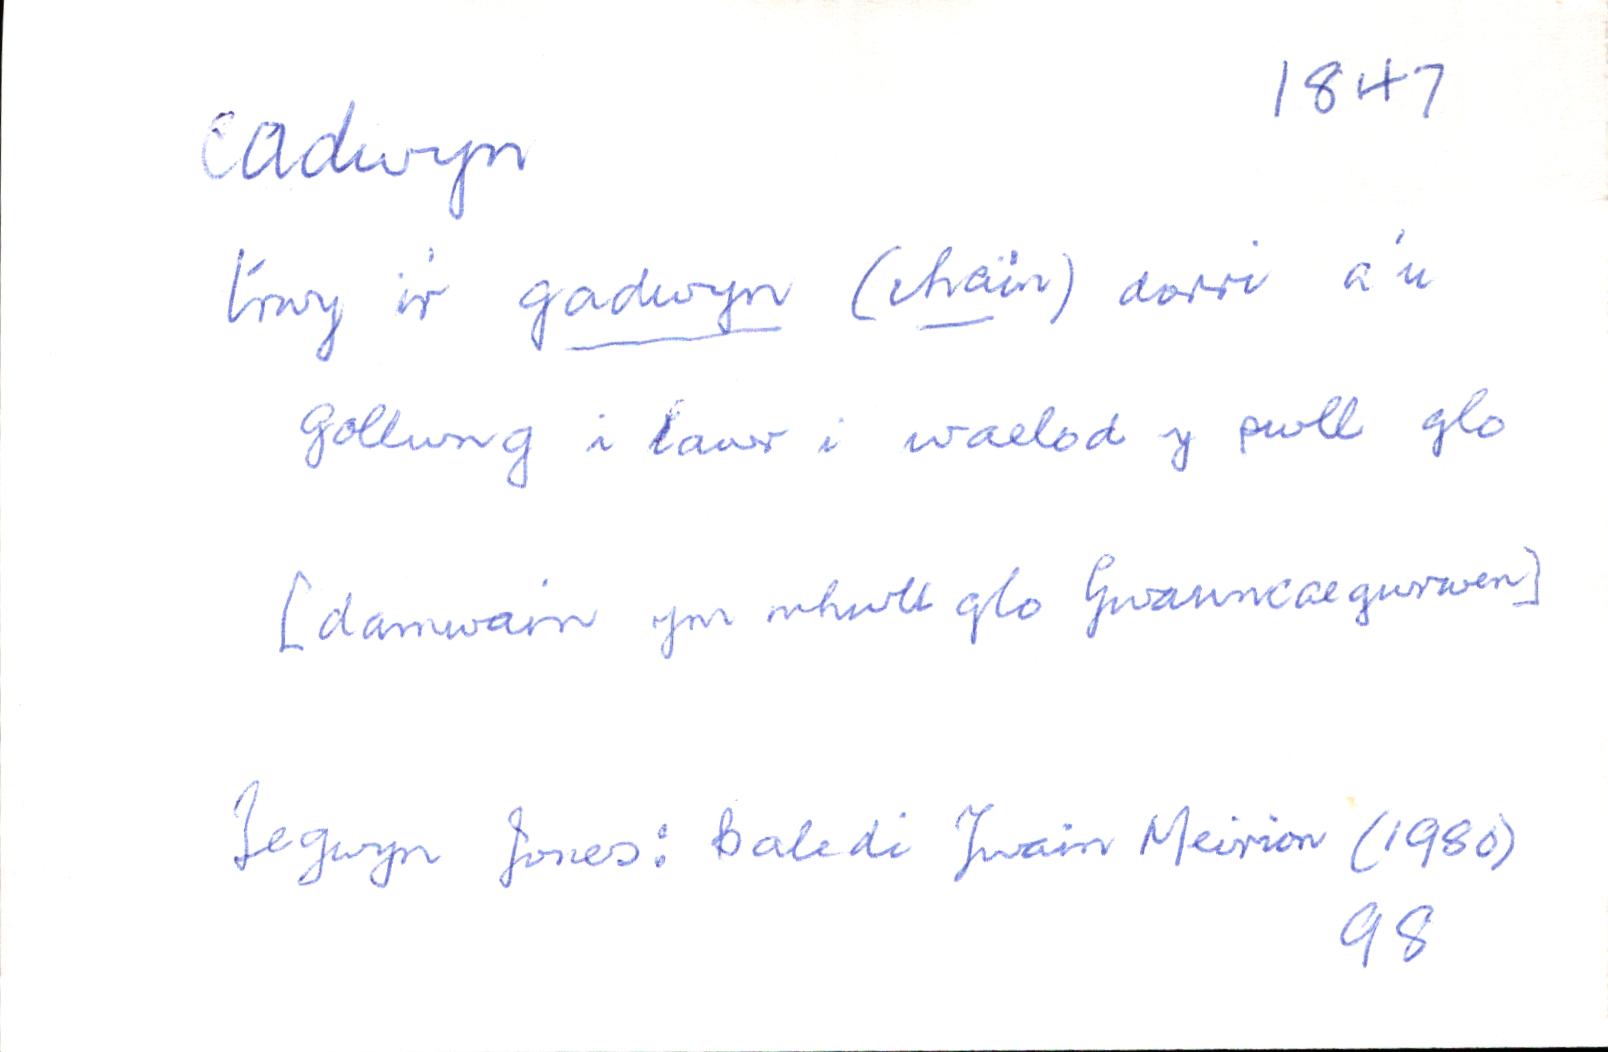 1847
cadwyn
trwy i'r gadwyn (chain) dorri a'u
gollwng i lawr i waelod y pwll glo
[damwain ym mhwll glo Gwauncaegurwen]
Tegwyn Jones: Baledi Ywain Meirion (1980)
98